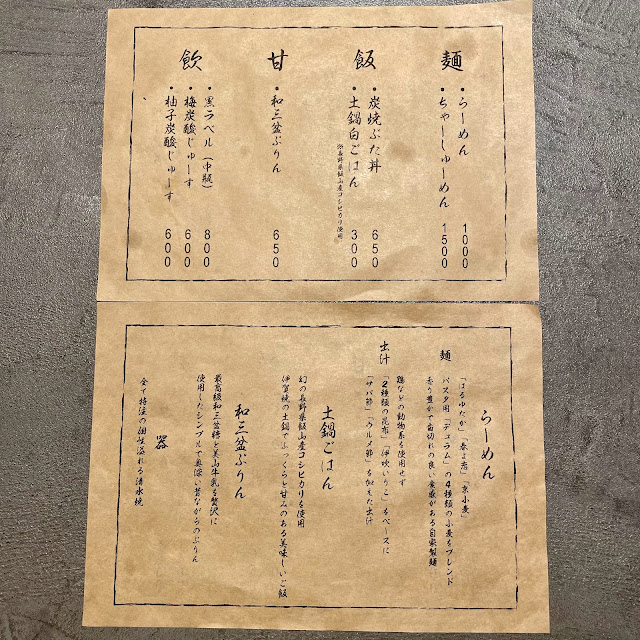 麺
・らーめん 1000
・ちゃーしゅーめん 1500
飯
・炭焼ぶた丼 650
・土鍋白ごはん 300
※長野県飯山産コシヒカリ使用
甘
・和三盆ぷりん 650
飲
・黒ラベル(中瓶) 800
・梅炭酸じゅーす 600
・柚子炭酸じゅーす 600
らーめん
麺
「はるゆたか」「春よ恋」「京小麦」
パスタ用「デュラム」の4種類の小麦をブレンド
香り豊かで歯切れの良い食感がある自家製麺
出汁
鶏などの動物系を使用せず
2種類の昆布「伊吹いりこ」をベースに
「サバ節」「ウルメ節」を加えた出汁
土鍋ごはん
幻の長野県飯山産コシヒカリを使用
伊賀焼の土鍋でふっくらと甘みのある美味しいご飯
和三盆ぷりん
最高級和三盆糖と美山牛乳を贅沢に
使用したシンプルで奥深い昔ながらのぷりん
器
全て特注の個性溢れる清水焼